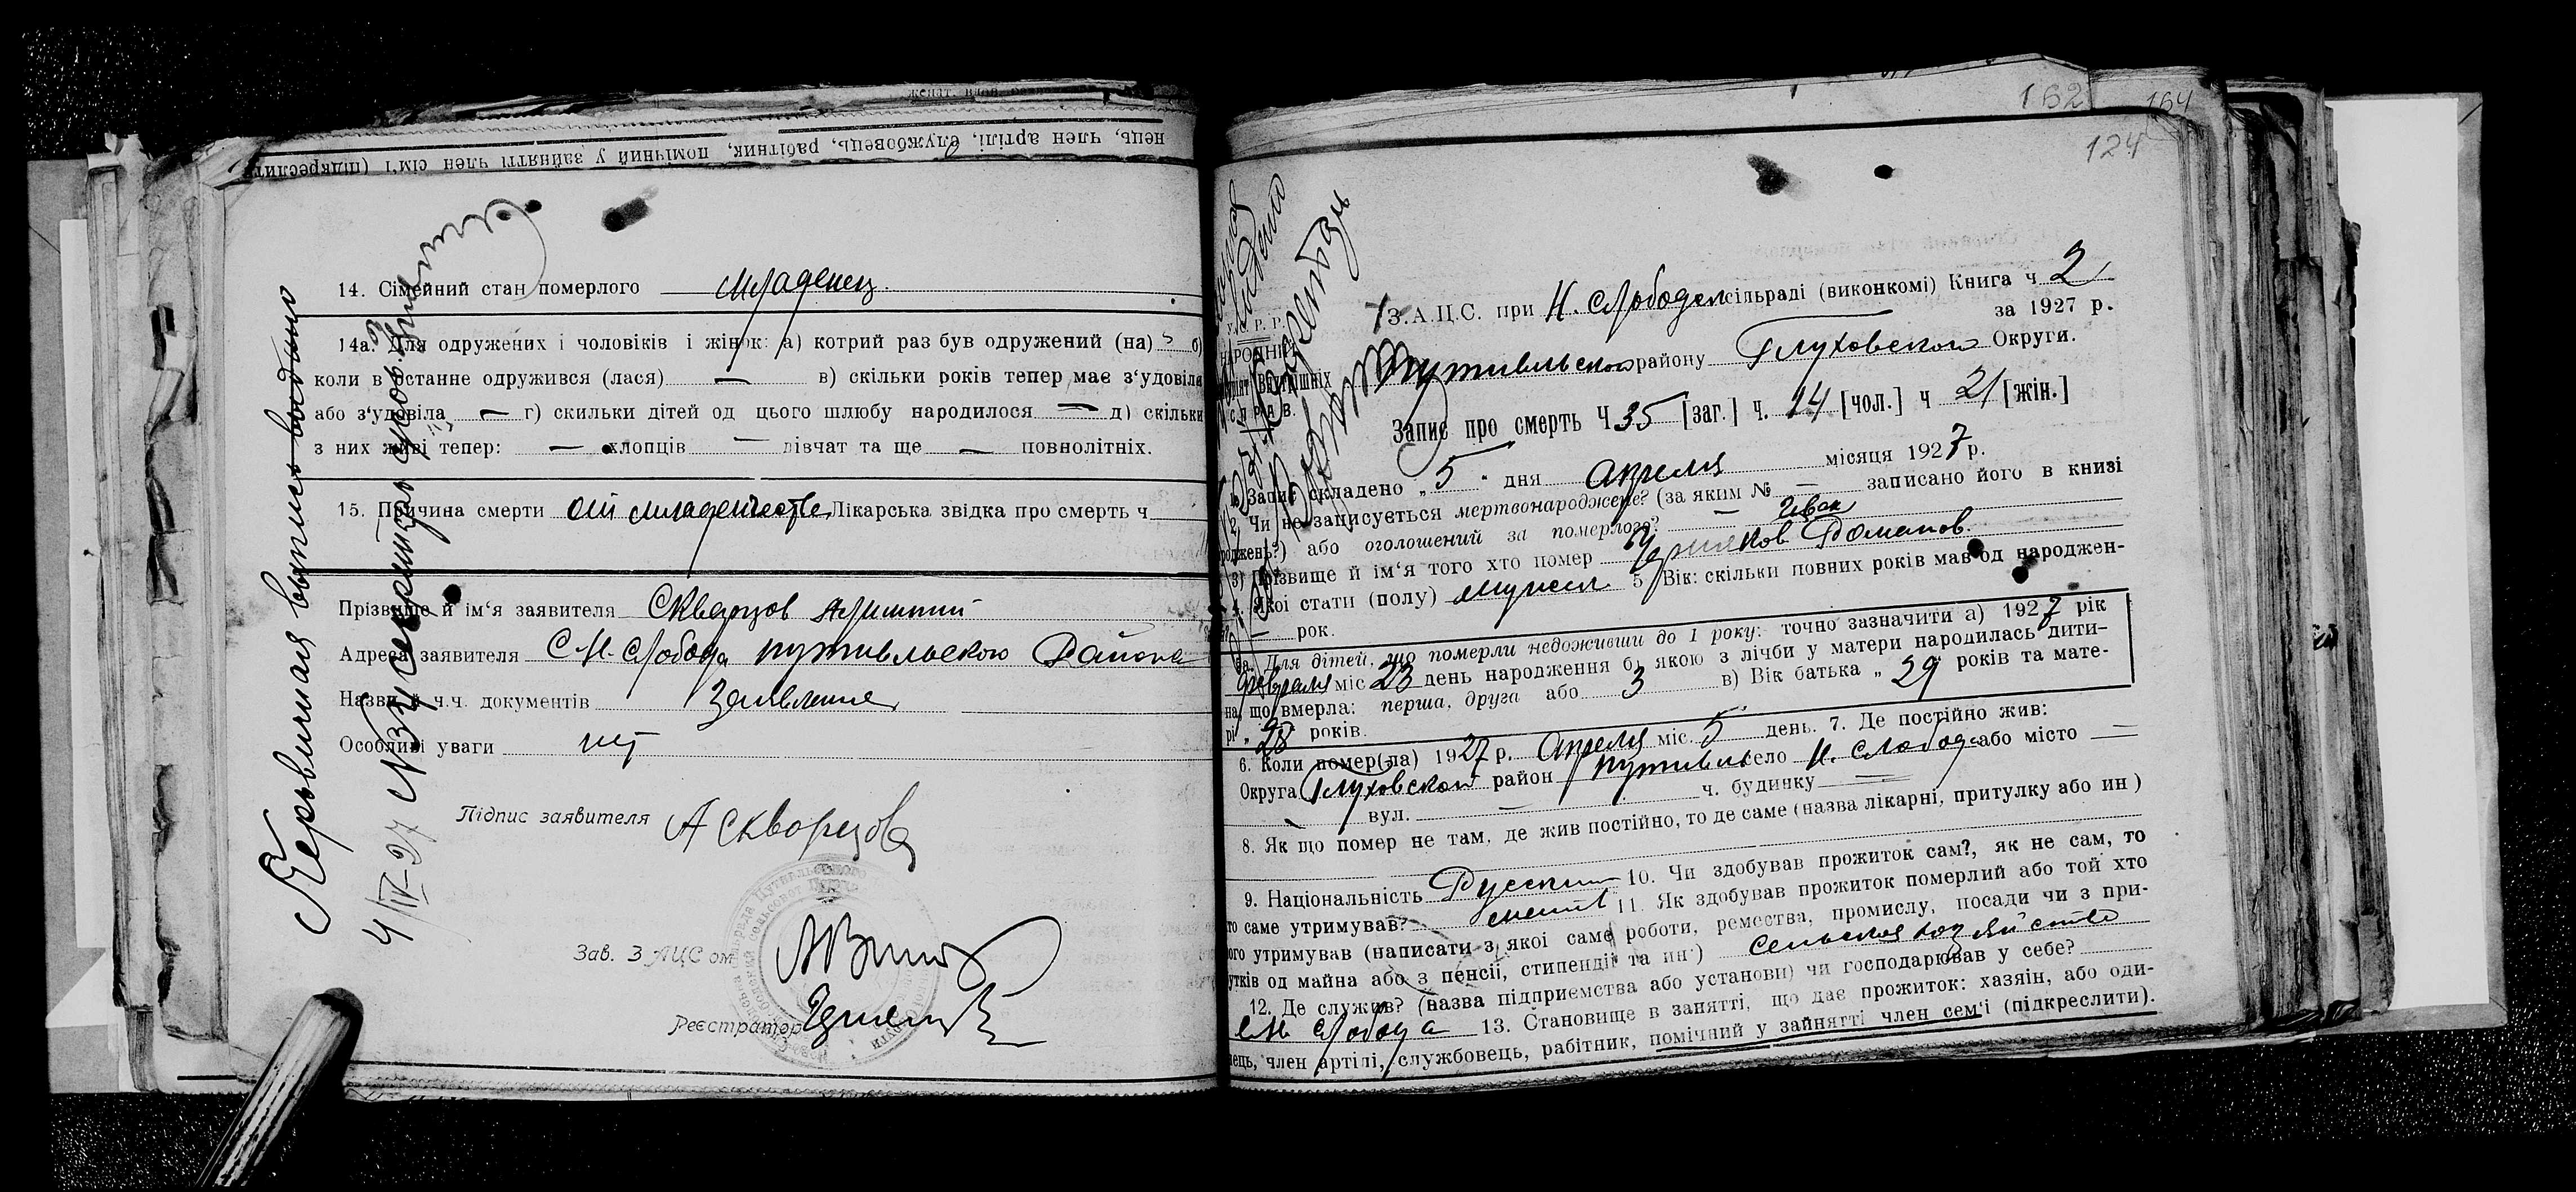 нець, член артілі, службовець, рабітник, помічний у зайнятті член сім'ї (підкреслити
14. Сімейний стан померлого младенец
14а. Для одружених і чоловіків і жінок: а) котрий раз був одружений (на) б)
коли в останне одружився (лася) — в) скільки років тепер має з'удовіла
або з'удовіла — г) скильки дітей од цього шлюбу народилося — д) скільки
з них живі тепер: — хлопців — дівчат та ще — повнолітніх.
15. Причина смерти от младенчества Лікарська звідка про смерть ч
Прізвище й ім'я заявителя Скварцов
Адреса заявителя С Н. Слобода путивльского Района
Назви й ч.ч. документів Заявление
Особливі уваги нет
Підпис заявителя А Скворцова
Зав. З АЦС ом
Реєстратор
Первичная выпись выдана
4/IV-27
162
164
124
З.А.Ц.С. при Н. Слободск сільраді (виконкомі) Книга ч 2
за 1927 р.
Путивльского району Глуховского Округи.
Запис про смерть Ч 35 [заг.] ч. 14 [чол.] ч 21 [жін.]
1. Запис складено „5" дня Апреля місяця 1927 р.
2. Чи не записується мертвонароджене? (за яким № — записано його в книзі
роджень?) або оголошений за померлого? — Иван
3) Прізвище й ім'я того хто помер Романов
4. Якої стати (полу) мужск 5. Вік: скільки повних років мав од народжен-
— рок.
5а. Для дітей, що померли недоживши до 1 року: точно зазначити а) 1927 рік
февраля міс 23 день народження б) якою з лічби у матери народилась дити-
на, що вмерла: перша, друга або 3 в) Вік батька „29 років та мате-
рі „28 років.
6. Коли помер(ла) 1927 р. Апреля міс. 5 день. 7. Де постійно жив:
Округа Глуховского район Путивльс село Н. Слобода або місто —
вул. — ч. будинку —
8. Як що помер не там, де жив постійно, то де саме (назва лікарні, притулку або ин)
9. Національність Русский 10. Чи здобував прожиток сам?, як не сам, то
то саме утримував? 11. Як здобував прожиток померлий або той хто
ого утримував (написати з якої саме роботи, ремества, промислу, посади чи з при-
утків од майна або з пенсії, стипендії та ин) сельское хозяйство
12. Де служив? (назва підприємства або установи) чи господарював у себе?
с Н Слобода 13. Становище в занятті, що дає прожиток: хазяін, або оди-
нець, член артілі, службовець, рабітник, помічний у зайнятті член сем'і (підкреслити).